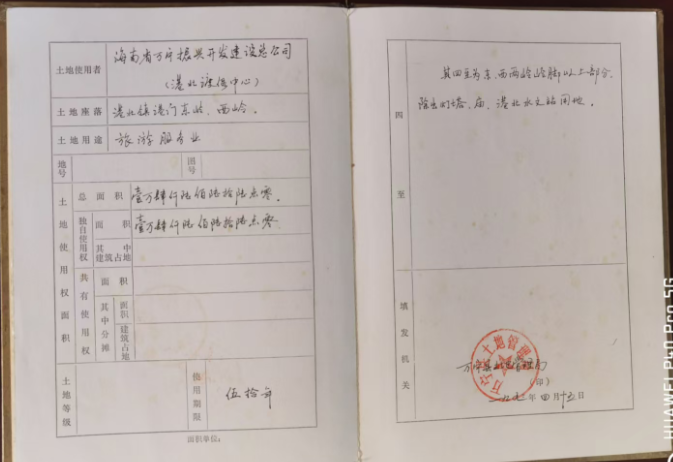 土地使用者 海南省万宁振兴开发建设总公司
(港北建港中心)
土地座落 港北镇港门东岭、西岭。
土地用途 旅游服务业
地号 图号
土地使用权面积
总面积 壹万肆仟陆佰陆拾陆点零.
独自使用权 面积 壹万肆仟陆佰陆拾陆点零
其中建筑占地
共有使用权 面积
其中分摊 面积
建筑占地
土地等级 使用期限 伍拾年
面积单位:
四至
其四至为东、西两岭岭脚以上部分,
除去灯塔、庙、港北水文站用地。
填发机关
土地管理
(印)
年四月十五日
HUAWEI P40 Pro 5G